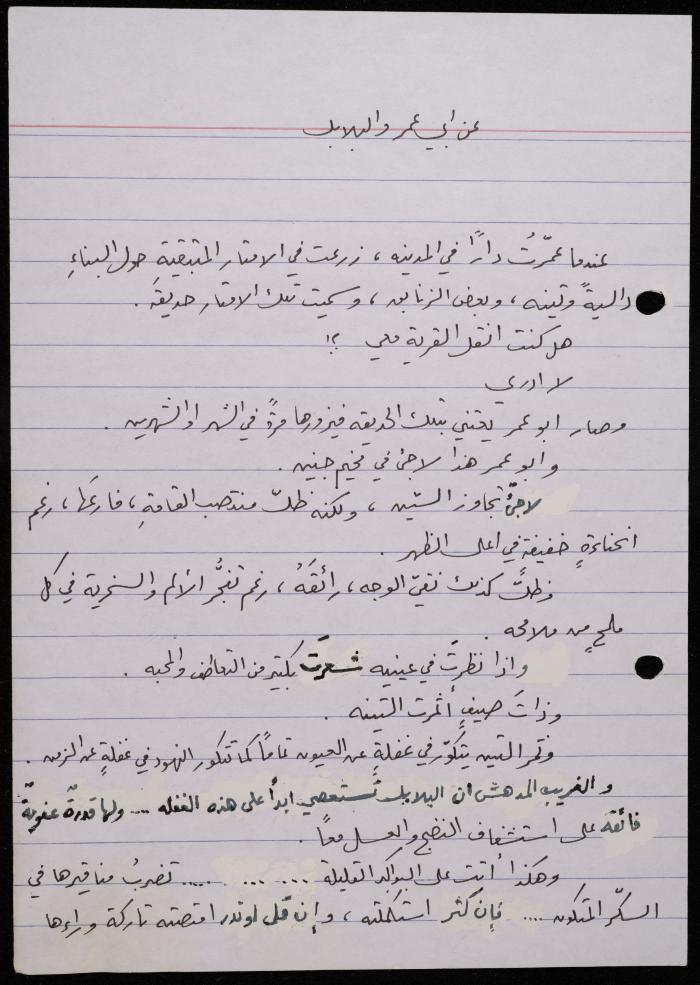 عن ابي عمر والبلابل
عندما عمّرتُ دارًا في المدينه ، زرعت في الامتار المتبقية حول البناءِ
داليةً وتينه ، وبعض الزنابق ، وسميت تلك الامتار حديقه .
هل كنت انقل القرية معي ؟!
لا ادري
وصار ابو عمر يعتني بتلك الحديقه فيزورها مرةً في الشهر او الشهرين .
وابو عمر هذا لاجئ في مخيم جنين .
لاجئٌ تجاوز الستين ، ولكنه ظلّ منتصب القامةِ ، فارعَها ، رغم
انحناءةٍ خفيفةٍ في اعلى الظهر .
وظلّ كذلك نقيّ الوجه ، رائقَهُ ، رغم تفجُّر الألم والسخرية في كل
ملمحٍ من ملامحه .
واذا نظرتَ في عينيه شعرتَ بكثير من التعاطف والمحبه .
وذاتَ صيفٍ أثمرت التينه .
وثمر التين يتكوّر في غفلةٍ عن العيون تمامًا كما تتكور النهود في غفلةٍ عن الزمن .
والغريب المدهش ان البلابل تستعصي ابدًا على هذه الغفله .... ولها قدرةٌ عفويةٌ
فائقة على استشفاف النضج والعسل معاً .
وهكذا أتت على البواكر القليلة .... ... .... ..... تضربُ مناقيرها في
السكّر المتكون .... فإن كثر استكملته ، وإن قلّ او ندر امتصته تاركة وراءها